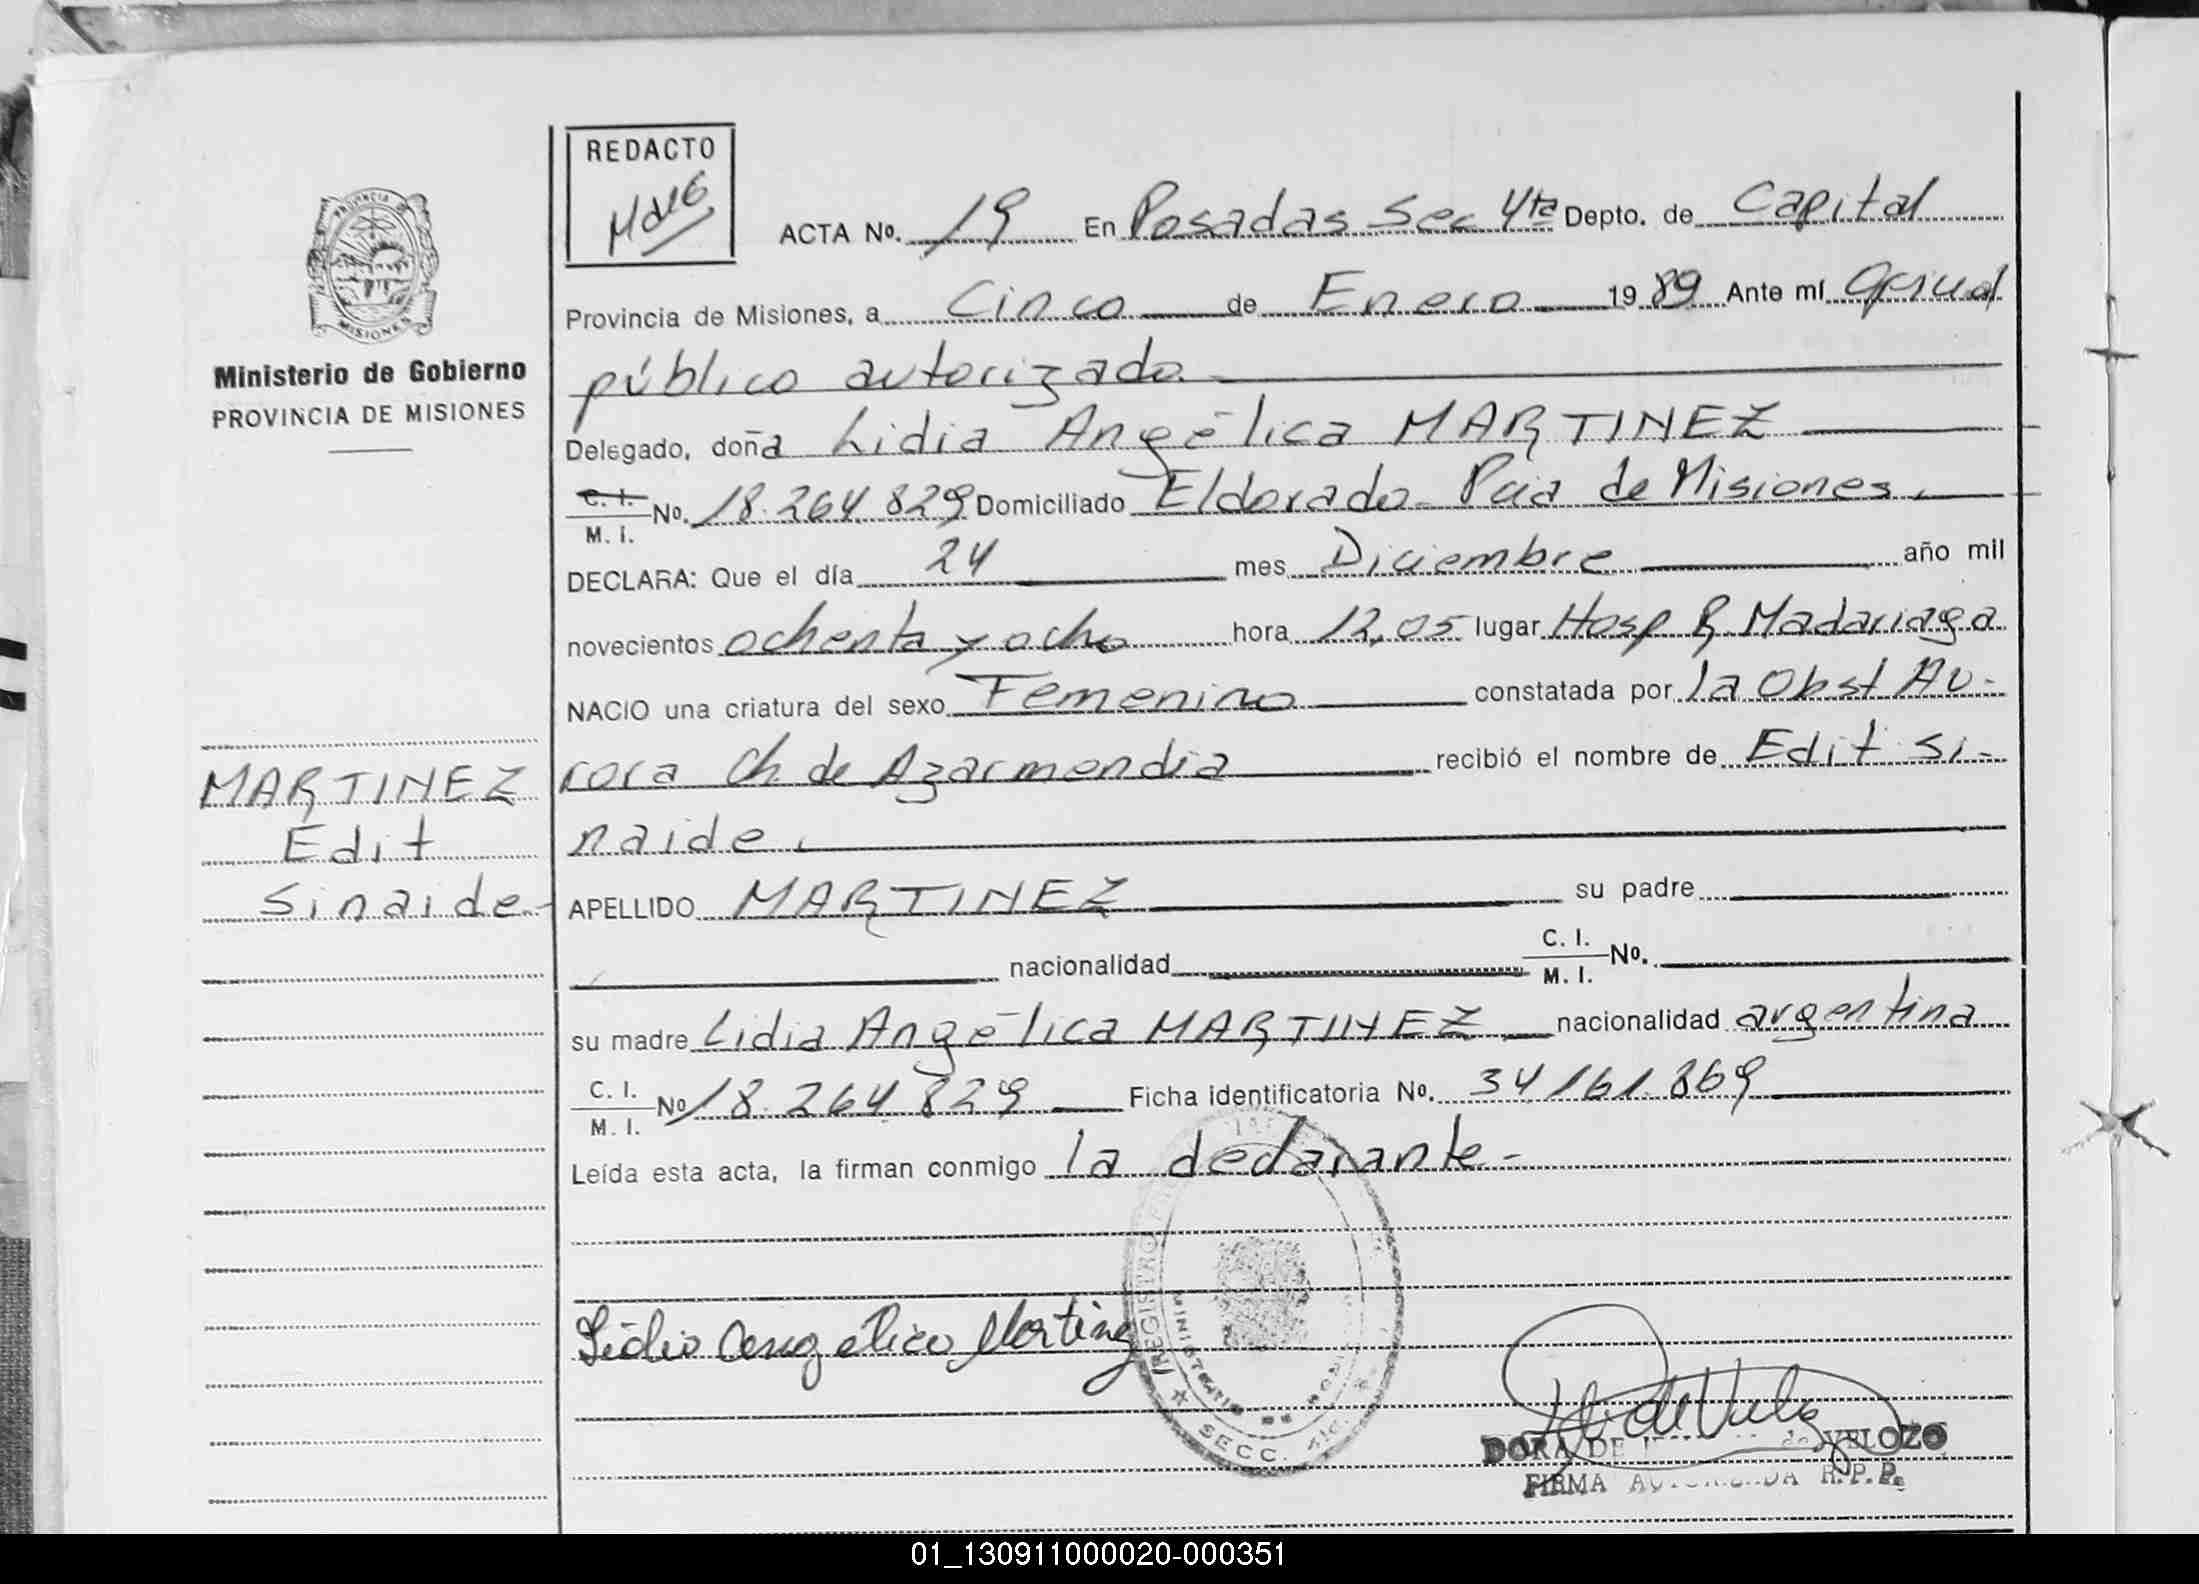 REDACTO
ACTA Nº. 19 En Posadas Sec 4ta Depto. de Capital
Provincia de Misiones, a Cinco de Enero 1989 Ante mí
público autorizado.
Ministerio de Gobierno
PROVINCIA DE MISIONES
Delegado, doña Lidia Angélica MARTINEZ
C. I.
M. I.
Nº. 18.264.829 Domiciliado Eldorado Pcia de Misiones.
DECLARA: Que el día 24 mes Diciembre año mil
novecientos ochenta y ocho hora 12,05 lugar Hosp R. Madariaga
NACIO una criatura del sexo Femenino constatada por la Obst Au-
rora Ch. de Azarmendia recibió el nombre de Edit Si-
naide.
MARTINEZ
Edit
Sinaide-
APELLIDO MARTINEZ su padre
nacionalidad C. I. M. I. Nº.
su madre Lidia Angélica MARTINEZ nacionalidad argentina
C. I.
M. I.
Nº 18.264.829 Ficha identificatoria Nº. 34.161.869
Leída esta acta, la firman conmigo la declarante.-
Lidia Angelica Martinez
REGISTRO
MINISTERIO DE
SECC. 4ta.
DORA DE VELOZO
FIRMA AUTORIZADA R.P.P.
01_130911000020-000351